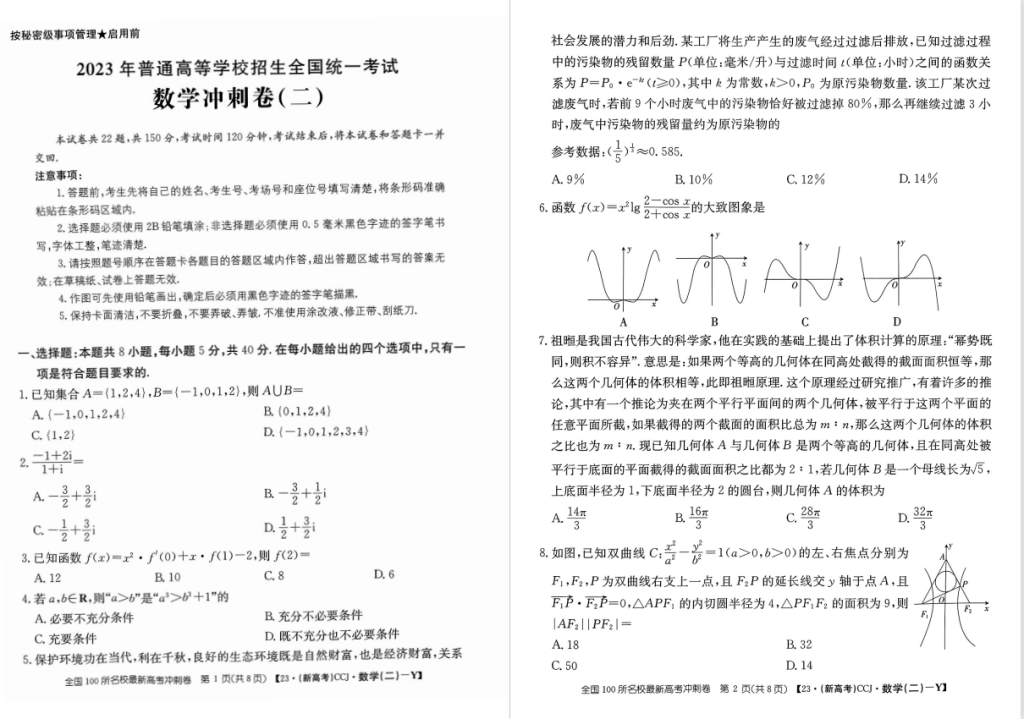 按秘密级事项管理★启用前
2023 年普通高等学校招生全国统一考试
数学冲刺卷(二)
本试卷共 22 题,共 150 分,考试时间 120 分钟,考试结束后,将本试卷和答题卡一并
交回.
注意事项:
1.答题前,考生先将自己的姓名、考生号、考场号和座位号填写清楚,将条形码准确
粘贴在条形码区域内.
2.选择题必须使用 2B 铅笔填涂;非选择题必须使用 0.5 毫米黑色字迹的签字笔书
写,字体工整,笔迹清楚.
3.请按照题号顺序在答题卡各题目的答题区域内作答,超出答题区域书写的答案无
效;在草稿纸、试卷上答题无效.
4.作图可先使用铅笔画出,确定后必须用黑色字迹的签字笔描黑.
5.保持卡面清洁,不要折叠,不要弄破、弄皱,不准使用涂改液、修正带、刮纸刀.
一、选择题:本题共 8 小题,每小题 5 分,共 40 分.在每小题给出的四个选项中,只有一
项是符合题目要求的.
1.已知集合 A={1,2,4},B={-1,0,1,2},则 A∪B=
A.{-1,0,1,2,4} B.{0,1,2,4}
C.{1,2} D.{-1,0,1,2,3,4}
2.(-1+2i)/(1+i)=
A.-3/2+3/2i B.-3/2+1/2i
C.-1/2+3/2i D.1/2+3/2i
3.已知函数 f(x)=x²·f′(0)+x·f(1)-2,则 f(2)=
A.12 B.10 C.8 D.6
4.若 a,b∈R,则“a>b”是“a³>b³+1”的
A.必要不充分条件 B.充分不必要条件
C.充要条件 D.既不充分也不必要条件
5.保护环境功在当代,利在千秋,良好的生态环境既是自然财富,也是经济财富,关系
全国 100 所名校最新高考冲刺卷 第 1 页(共 8 页) 【23·(新高考)CCJ·数学(二)-Y】
社会发展的潜力和后劲.某工厂将生产产生的废气经过过滤后排放,已知过滤过程
中的污染物的残留数量 P(单位:毫米/升)与过滤时间 t(单位:小时)之间的函数关
系为 P=P₀·e^(-kt)(t≥0),其中 k 为常数,k>0,P₀ 为原污染物数量.该工厂某次过
滤废气时,若前 9 个小时废气中的污染物恰好被过滤掉 80%,那么再继续过滤 3 小
时,废气中污染物的残留量约为原污染物的
参考数据:(1/5)^(1/3)≈0.585.
A.9% B.10% C.12% D.14%
6.函数 f(x)=x²lg (2-cos x)/(2+cos x)的大致图象是
y y y y
O x O x O x O x
A B C D
7.祖暅是我国古代伟大的科学家,他在实践的基础上提出了体积计算的原理:“幂势既
同,则积不容异”.意思是:如果两个等高的几何体在同高处截得的截面面积恒等,那
么这两个几何体的体积相等,此即祖暅原理.这个原理经过研究推广,有着许多的推
论,其中有一个推论为夹在两个平行平面间的两个几何体,被平行于这两个平面的
任意平面所截,如果截得的两个截面的面积比总为 m∶n,那么这两个几何体的体积
之比也为 m∶n.现已知几何体 A 与几何体 B 是两个等高的几何体,且在同高处被
平行于底面的平面截得的截面面积之比都为 2∶1,若几何体 B 是一个母线长为√5,
上底面半径为 1,下底面半径为 2 的圆台,则几何体 A 的体积为
A.14π/3 B.16π/3 C.28π/3 D.32π/3
8.如图,已知双曲线 C:x²/a²-y²/b²=1(a>0,b>0)的左、右焦点分别为
F₁,F₂,P 为双曲线右支上一点,且 F₂P 的延长线交 y 轴于点 A,且
F₁P·F₂P=0,△APF₁ 的内切圆半径为 4,△PF₁F₂ 的面积为 9,则
|AF₂||PF₂|=
y
A
P
O
F₁ F₂ x
A.18 B.32
C.50 D.14
全国 100 所名校最新高考冲刺卷 第 2 页(共 8 页) 【23·(新高考)CCJ·数学(二)-Y】